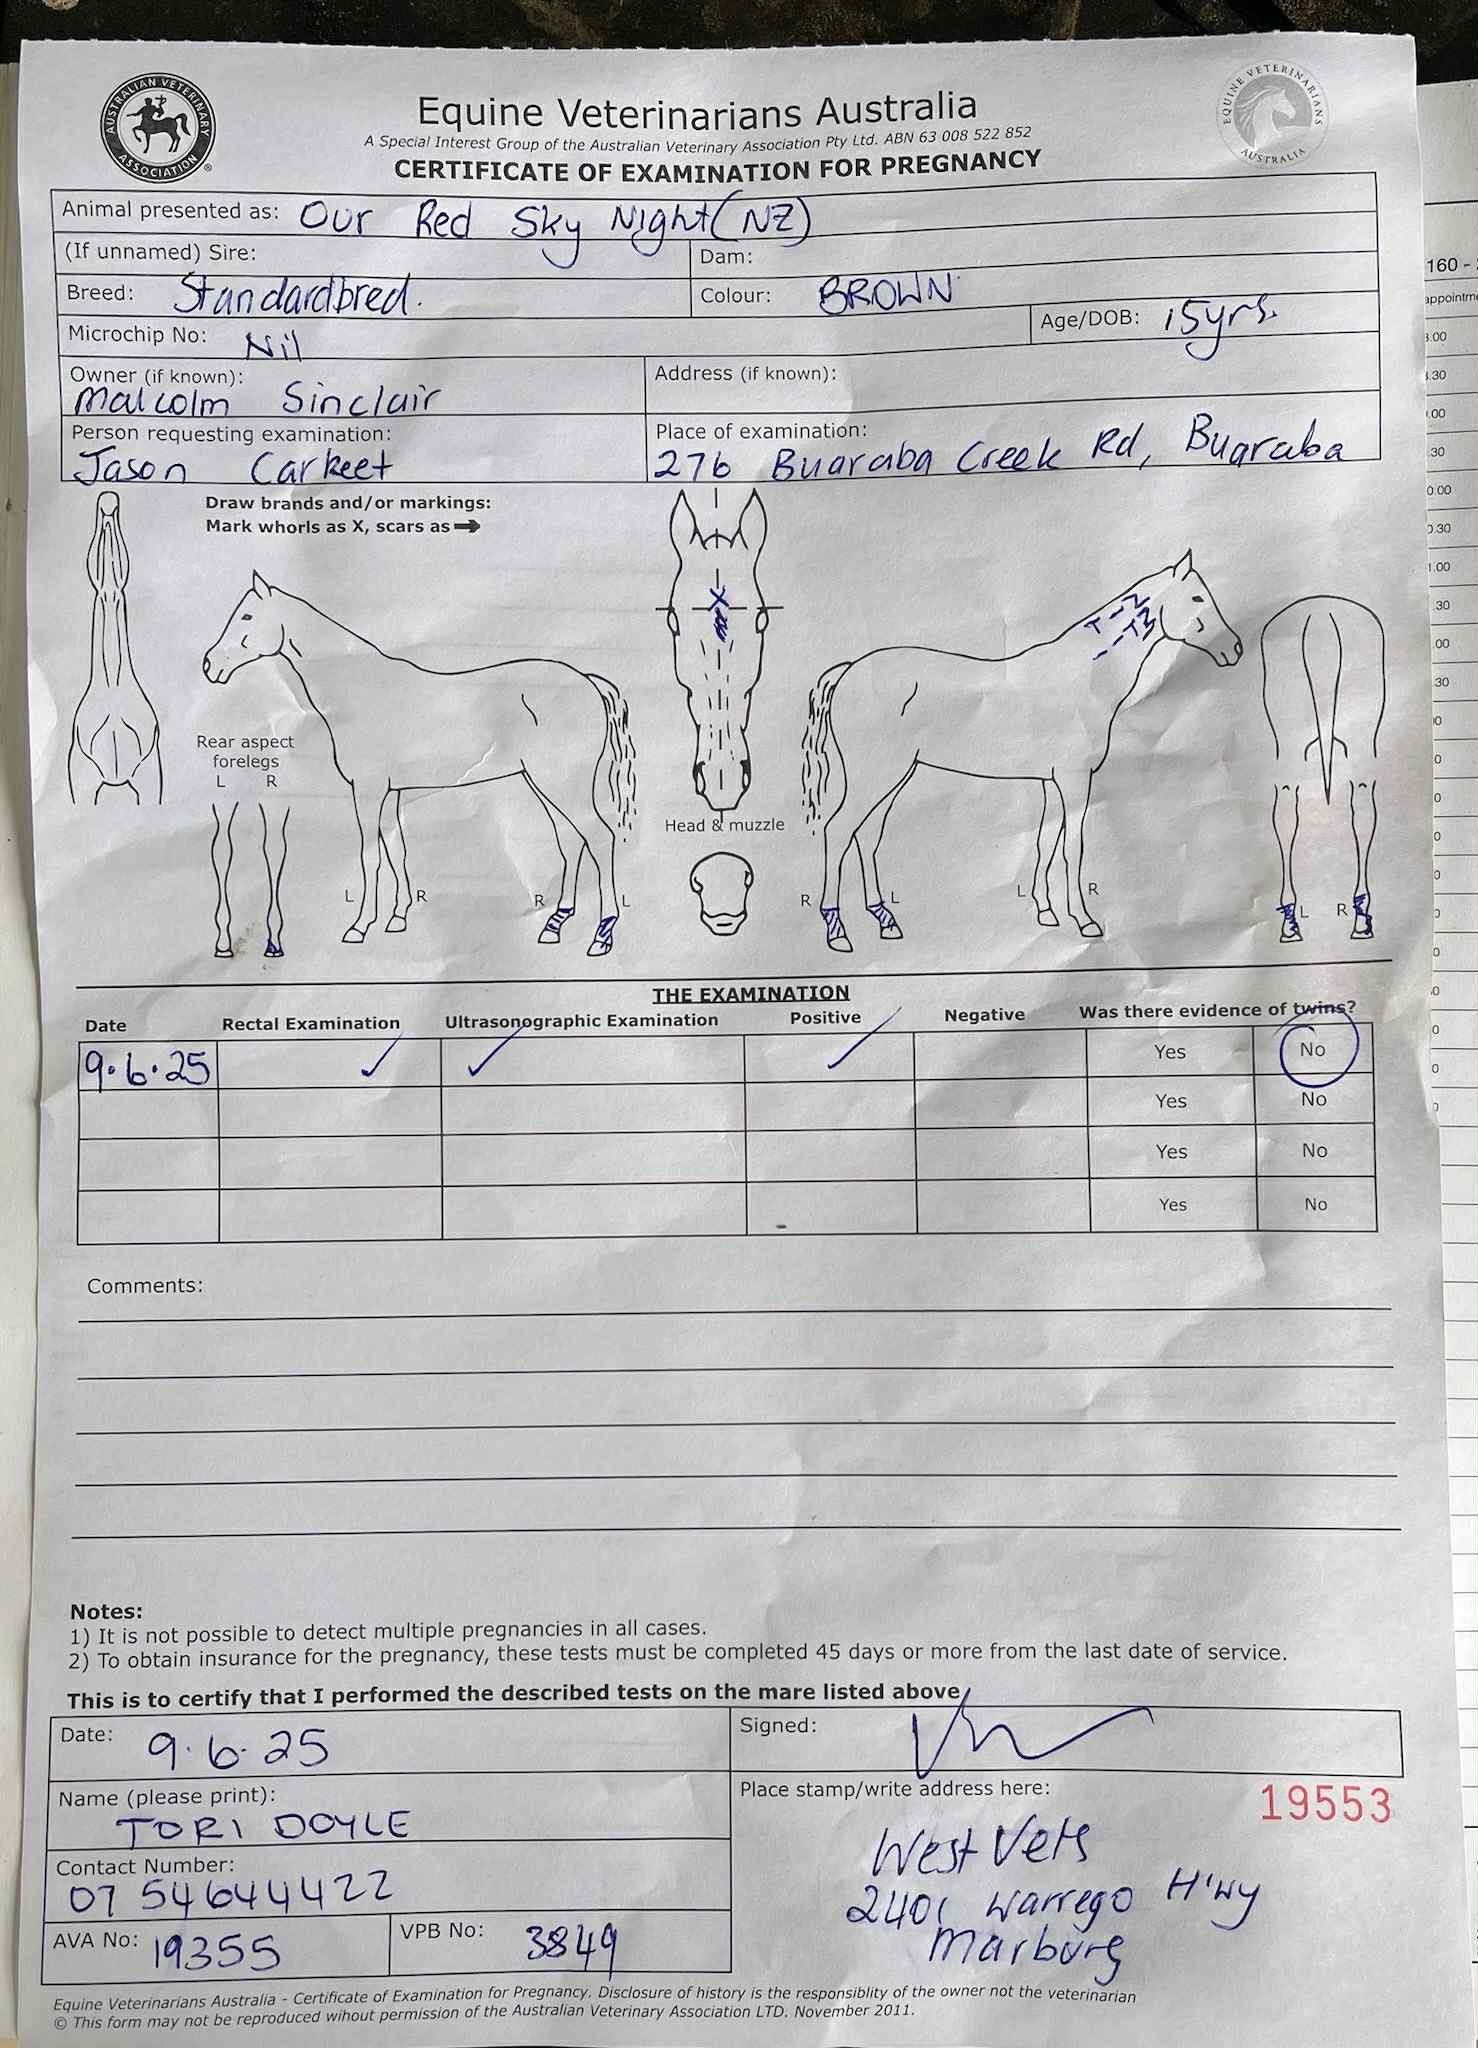 AUSTRALIAN VETERINARY ASSOCIATION
EQUINE VETERINARIANS AUSTRALIA
Equine Veterinarians Australia
A Special Interest Group of the Australian Veterinary Association Pty Ltd. ABN 63 008 522 852
CERTIFICATE OF EXAMINATION FOR PREGNANCY
Animal presented as: Our Red Sky Night (NZ)
(If unnamed) Sire: Dam:
Breed: Standardbred. Colour: BROWN
Microchip No: Nil Age/DOB: 15yrs.
Owner (if known): Address (if known):
Malcolm Sinclair
Person requesting examination: Place of examination:
Jason Carkeet 276 Buaraba Creek Rd, Buaraba
Draw brands and/or markings:
Mark whorls as X, scars as →
X
Rear aspect
forelegs
L R
Head & muzzle
L R R L R L L R L R
THE EXAMINATION
Date Rectal Examination Ultrasonographic Examination Positive Negative Was there evidence of twins?
9.6.25 ✓ ✓ ✓ Yes No
Yes No
Yes No
Yes No
Comments:
Notes:
1) It is not possible to detect multiple pregnancies in all cases.
2) To obtain insurance for the pregnancy, these tests must be completed 45 days or more from the last date of service.
This is to certify that I performed the described tests on the mare listed above
Date: 9.6.25 Signed:
Name (please print): Place stamp/write address here: 19553
TORI DOYLE
West Vets
Contact Number:
07 54644422
2401 Warrego H'wy
Marburg
AVA No: 19355 VPB No: 3849
Equine Veterinarians Australia - Certificate of Examination for Pregnancy. Disclosure of history is the responsiblity of the owner not the veterinarian
© This form may not be reproduced wihout permission of the Australian Veterinary Association LTD. November 2011.
160 -